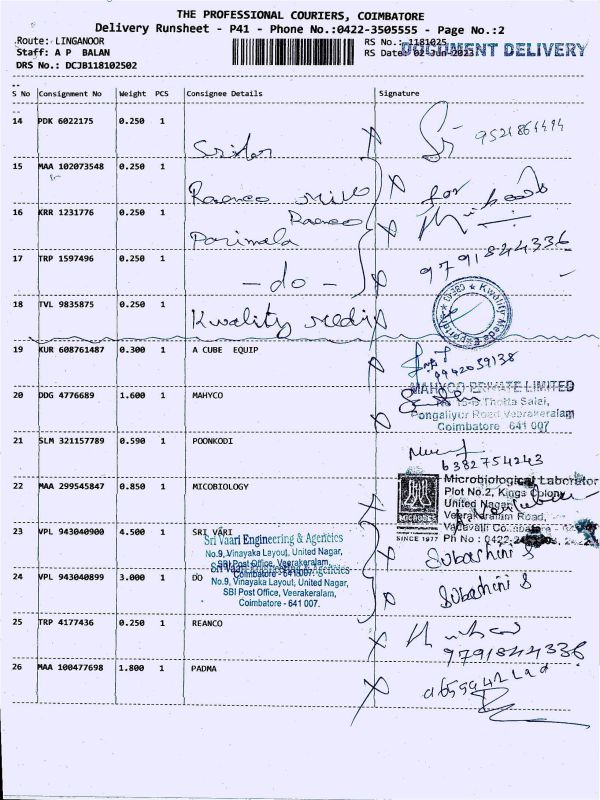 THE PROFESSIONAL COURIERS, COIMBATORE
Delivery Runsheet - P41 - Phone No.:0422-3505555 - Page No.:2
Route: LINGANOOR
RS No.: 1181025
Staff: A P BALAN
RS Date: 02-Jun-2023
DOCUMENT DELIVERY
DRS No.: DCJB118102502
S No Consignment No Weight PCS Consignee Details Signature
14 PDK 6022175 0.250 1
15 MAA 102073548 0.250 1
for
16 KRR 1231776 0.250 1 Parimala
9791844336
17 TRP 1597496 0.250 1 - do -
18 TVL 9835875 0.250 1 Kwality Medi
19 KUR 608761487 0.300 1 A CUBE EQUIP
9942039138
20 DDG 4776689 1.600 1 MAHYCO
MAHYCO PRIVATE LIMITED
Thotta Salai,
Pongaliyur Road Veerakeralam
Coimbatore 641 007
21 SLM 321157789 0.590 1 POONKODI
6382754243
22 MAA 299545847 0.850 1 MICOBIOLOGY
SINCE 1977
Microbiological Laborator
Plot No.2, Kings Colony
United Nagar,
Veerakeralam Road,
Vadavalli
Ph No : 0422
23 VPL 943040900 4.500 1 SRI VARI
Sri Vaari Engineering & Agencies
No.9, Vinayaka Layout, United Nagar,
SBI Post Office, Veerakeralam,
Coimbatore - 641 007.
Subashini S
24 VPL 943040899 3.000 1 DO
Sri Vaari Engineering & Agencies
No.9, Vinayaka Layout, United Nagar,
SBI Post Office, Veerakeralam,
Coimbatore - 641 007.
Subashini S
25 TRP 4177436 0.250 1 REANCO
9791844336
26 MAA 100477698 1.800 1 PADMA